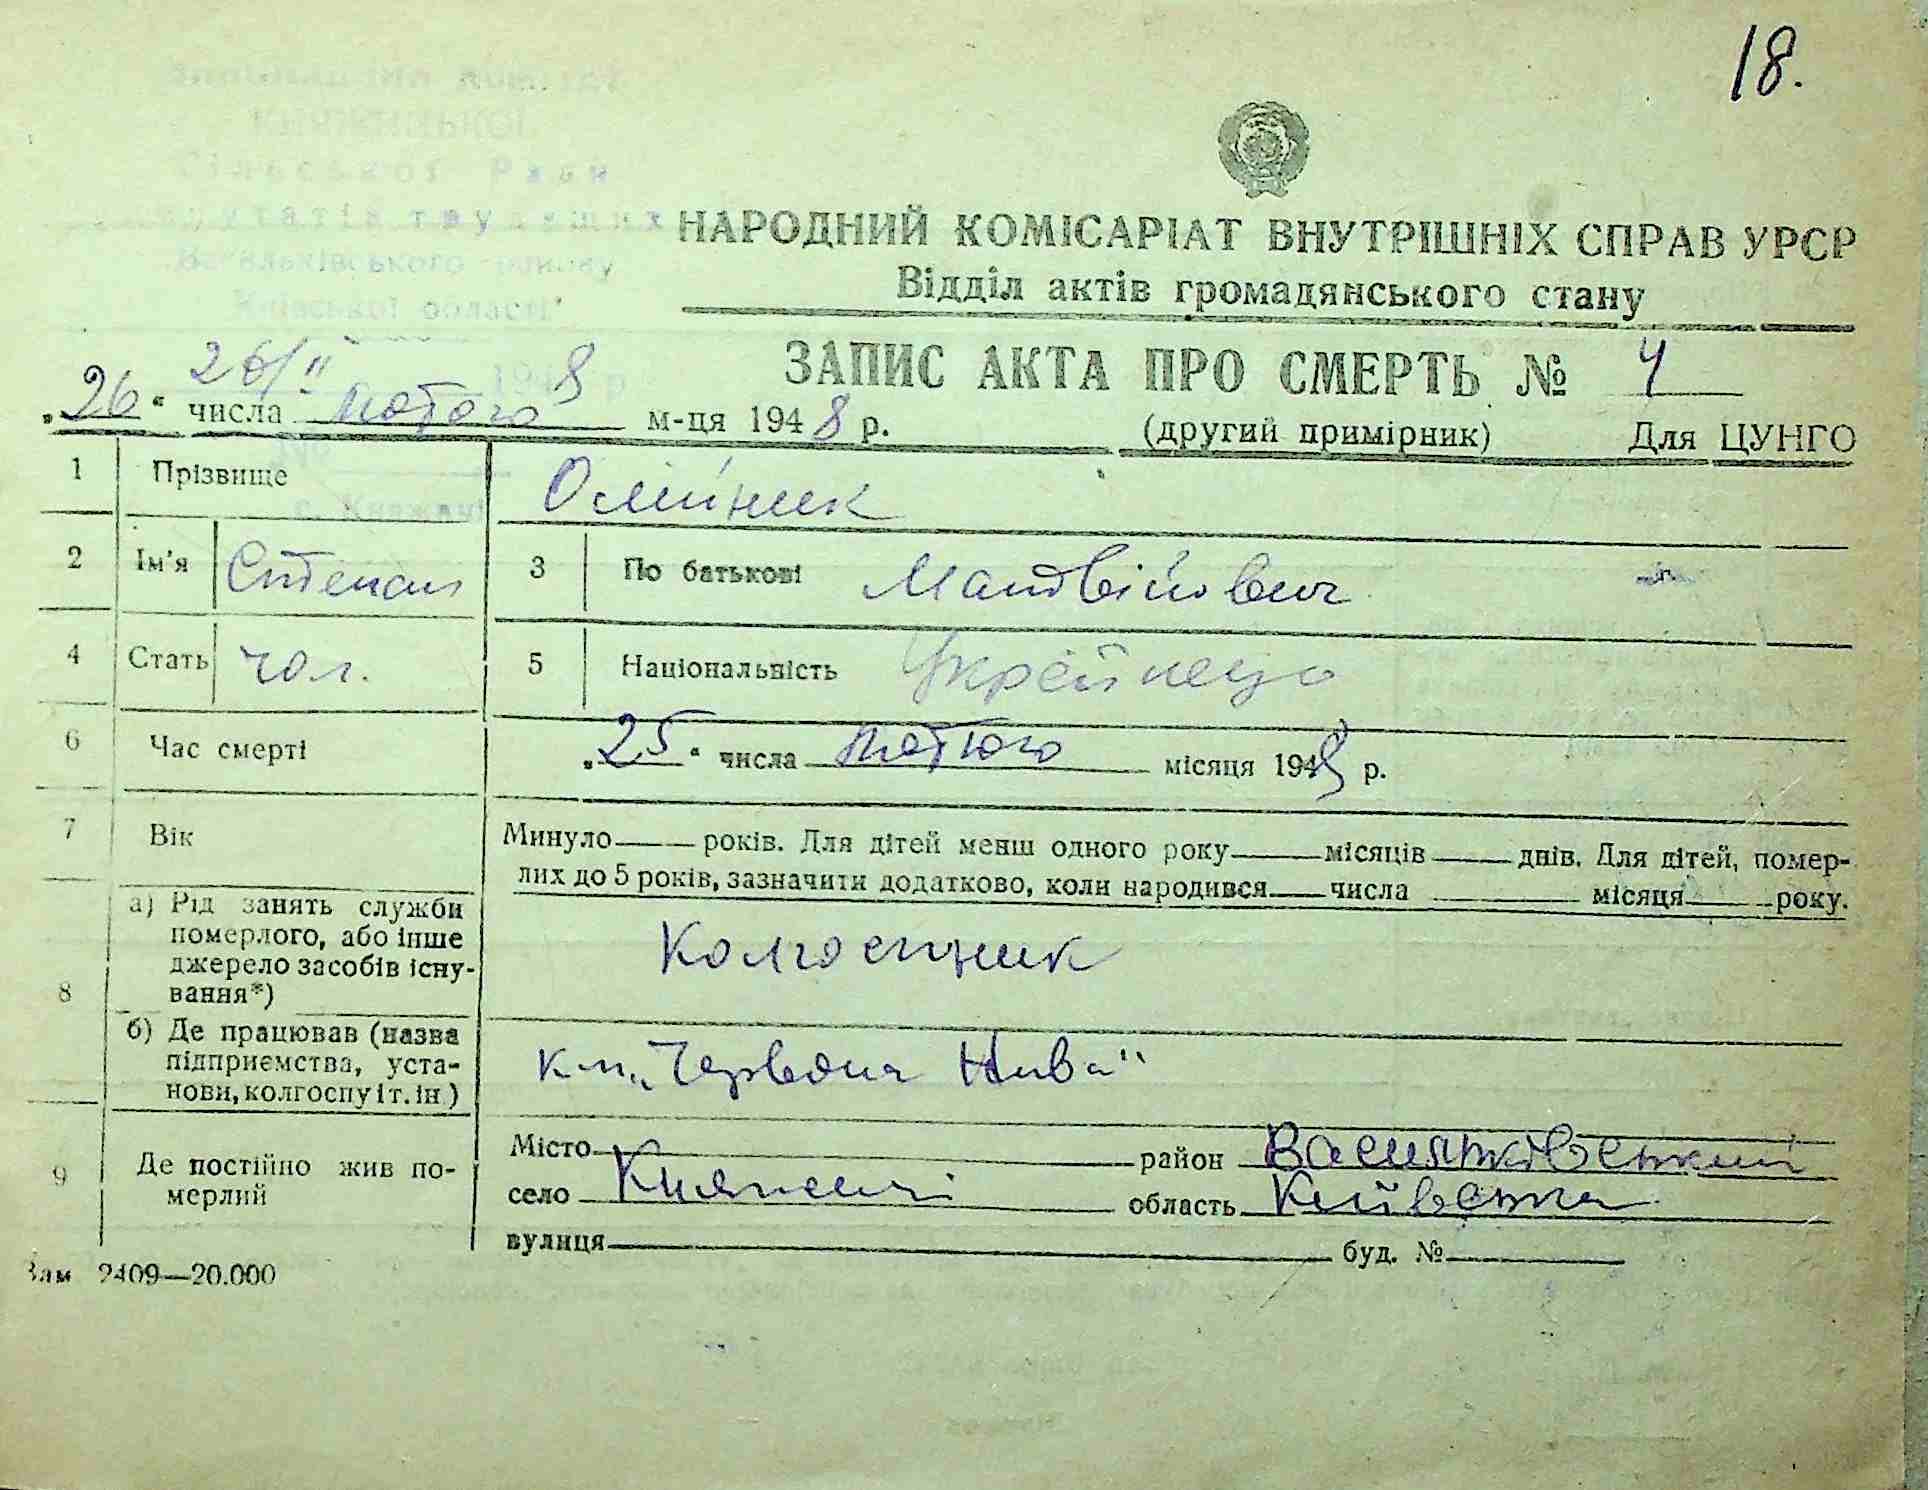 18.
Сільської Ради
Київської області
НАРОДНИЙ КОМІСАРІАТ ВНУТРІШНІХ СПРАВ УРСР
Відділ актів громадянського стану
26/II 1948 р
ЗАПИС АКТА ПРО СМЕРТЬ № 4
„26“ числа лютого м-ця 1948 р.
(другий примірник) Для ЦУНГО
1 Прізвище Олійник
с. Княжичі
2 Ім'я Степан 3 По батькові Матвійович
4 Стать чол. 5 Національність Українець
6 Час смерті „25“ числа лютого місяця 1948 р.
7 Вік Минуло — років. Для дітей менш одного року — місяців — днів. Для дітей, помер-
лих до 5 років, зазначити додатково, коли народився — числа — місяця — року.
8 а) Рід занять служби
померлого, або інше
джерело засобів існу-
вання*)
Колгоспник
б) Де працював (назва
підприємства, уста-
нови, колгоспу і т. ін.)
к-п „Червона Нива“
9 Де постійно жив по-
мерлий
Місто район Васильківський
село Княжичі область Київська
вулиця буд. №
Зам 2409—20.000